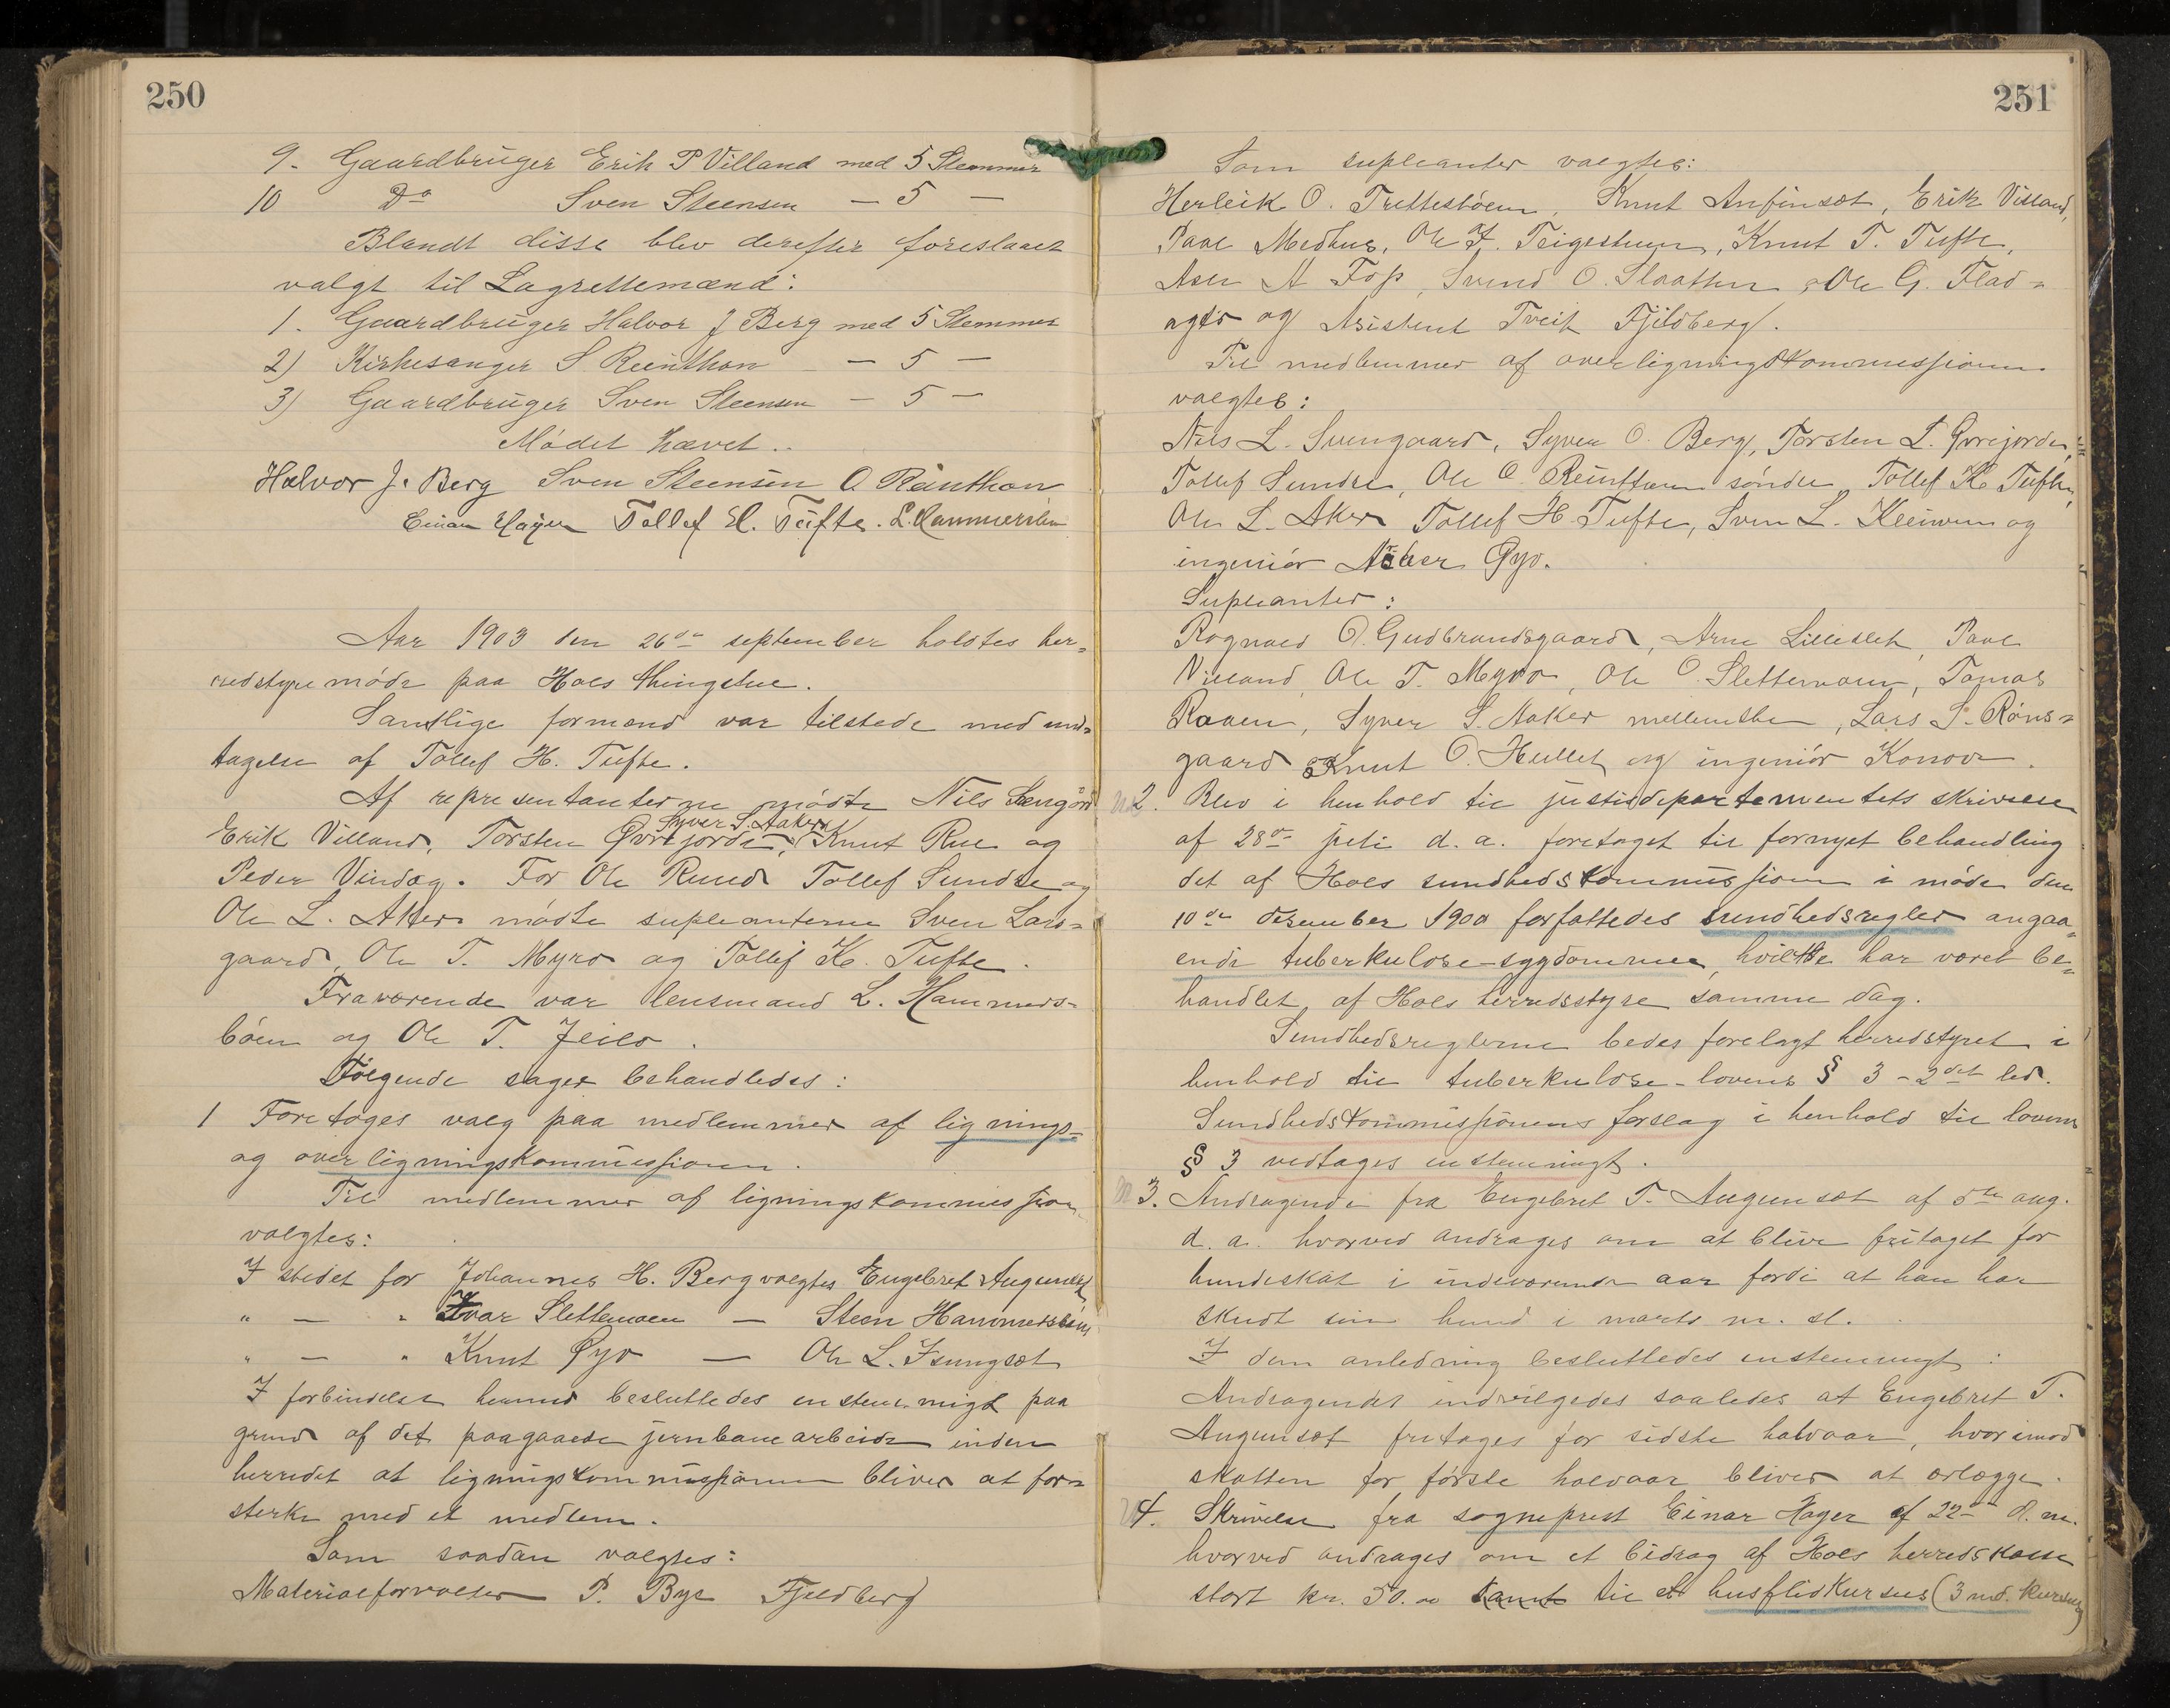 250
9. Gaardbruger Erik P Villand med 5 Stemmer
10 Do Sven Steensen — 5 —
Blandt disse blev derefter foreslaaet
valgt til Lagrettemænd:
1. Gaardbruger Halvor J Berg med 5 Stemmer
2) Kirkesanger S Reinthon — 5 —
3) Gaardbruger Sven Steensen — 5 —
Mødet hævet..
Halvor J. Berg Sven Steensen O Reinthon
Einar Hager Tollef H. Tufte. L. Hammersbøen
Aar 1903 den 26de september holdtes her=
redstyremøde paa Hols thingstue.
Samtlige formænd var tilstede med und=
tagelse af Tollef H. Tufte.
Af representanterne mødte Nils
Syver S. Aaker
Erik Villand, Torsten Øvrejorde, Knut Rue og
Peder Vindæg. For Ole Ruud Tollef Sundre og
Ole L. Aker mødte supleanterne Sven Lars=
gaard, Ole T. Myro og Tollef K. Tufte.
Fraværende var lensmand L. Hammers=
bøen og Ole T. Jeilo.
Følgende sager behandledes:
1 Foretages valg paa medlemmer af lignings=
og overligningskommissionen.
Til medlemmer af ligningskommission
valgtes:
I stedet for Johannes H. Berg valgtes Engebret Augunset
" — " Ivar Slettemoen — Steen Hammersbøen
" — " Knut Øyo — Ole L. Isungset
I forbindelse hermed besluttedes enstemmigt paa
grund af det paagaaede jernbanearbeide inden
herredet at ligningskommissionen bliver at for=
sterke med et medlem.
Som saadan valgtes:
Materialforvalter P. Bye Fjeldberg
251
Som supleanter valgtes:
Herleik O. Trettestøen, Knut Anfinset, Erik Villand,
Paal Medhus, Ole I. Teigestuen, Knut T. Tufte,
Asle A Foss, Svend O. Slaatten, Ole G. Flad=
ager og Asistent Tveit Fjeldberg.
Til medlemmer af overligningskommissionen
valgtes:
Nils L. Svengaard, Syver O. Berg, Torsten L. Øvrejorde,
Tollef Sundre, Ole O. Reinton søndre, Tollef K Tufte,
Ole L. Aker Tollef H Tufte, Sven L. Kleiven og
ingeniør Øyo.
Supleanter:
Rognald O. Gudbrandsgaard, Arne Lilleslet, Paal
Villand, Ole T. Myro, Ole O. Slettemoen, Tomas
Raaen, Syver S. Aaker mellemste, Lars S. Røns=
gaard Knut O. Hullet og ingeniør Konow.
2. Blev i henhold til justisdepartementets skrivelse
af 28de juli d. a. foretaget til fornyet behandling
det af Hols sundhedskommission i møde den
10de desember 1900 forfattedes sundhedsregler angaa=
ende tuberkulose-sygdommen, hvilke har været be=
handlet af Hols herredsstyre samme dag.
Sundhedsreglerne bedes forelagt herredstyret i
henhold til tuberkulose-lovens § 3 - 2det led.
Sundhedskommissionens forslag i henhold til lovens
§ 3 vedtages enstemmigt.
3. Andragende fra Engebret T. Augunset af 5te aug.
d. a. hvorved andrages om at blive fritaget for
hundeskat i indeværende aar fordi at han har
skudt sin hund i marts m. sl.
I den anledning besluttedes enstemmigt:
Andragendet indvilgedes saaledes at Engebret T.
Augunset fritages for sidste halvaar, hvorimod
skatten for første halvaar bliver at erlægge.
4. Skrivelse fra sogneprest Einar Hager af 22de d. m.
hvorved andrages om et bidrag af Hols herredskasse
stort kr. 50.00 samt til et husflidkursus (3 md. kursus)